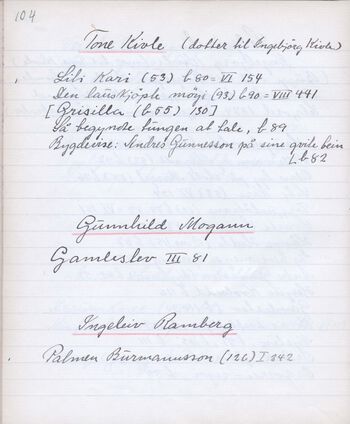 104
Tone Kivle (dotter til Ingebjörg Kivle)
Liti Kari (53) b 80 = VI 154
Den lauskjöpte möyi (93) b 90 = VIII 441
[Grisilla (b 55) 130]
Så begynte tungen at tale, b 89
Bygdevise: Andres Gunnesson på sine qvite bein
[b 82
Gunnhild Mogann
Gamleslev III 81
Ingeleiv Ramberg
Palmen Burmannsson (126) I 242